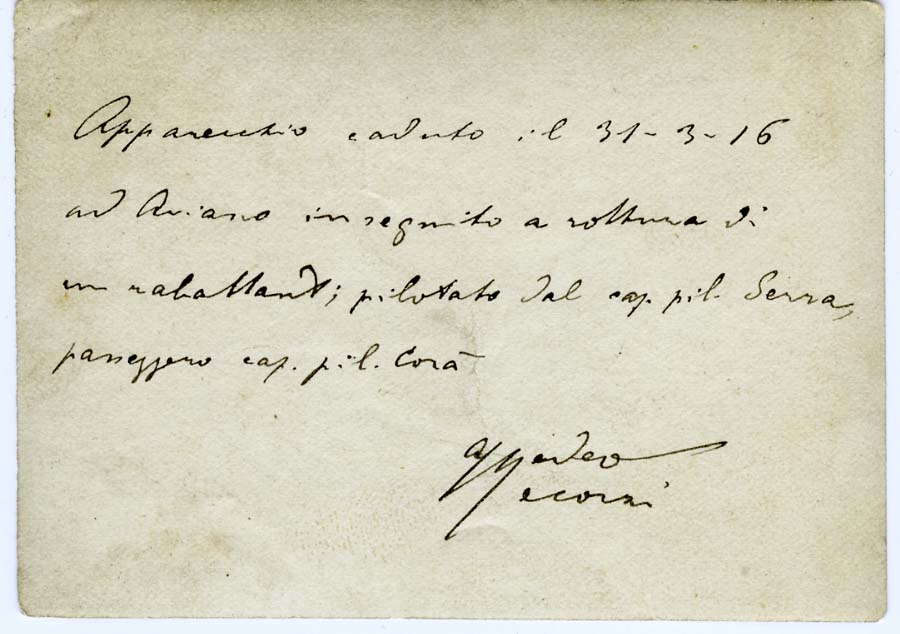 Apparecchio caduto il 31-3-16
ad Aviano in seguito a rottura di
un rabattant; pilotato dal cap. pil. Serra,
passeggero cap. pil. Corà
Amedeo
Mecozzi